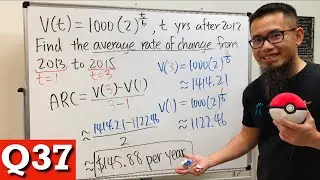 V(t) = 1000(2)^(t/6), t yrs after 2012
Find the average rate of change from
2013 to 2015
t=1 t=3
V(3) = 1000(2)^(3/6)
≈ 1414.21
ARC = (V(3) - V(1))/(3 - 1)
V(1) = 1000(2)^(1/6)
≈ 1122.46
≈ (1414.21 - 1122.46)/2
≈ $145.88 per year
Q37